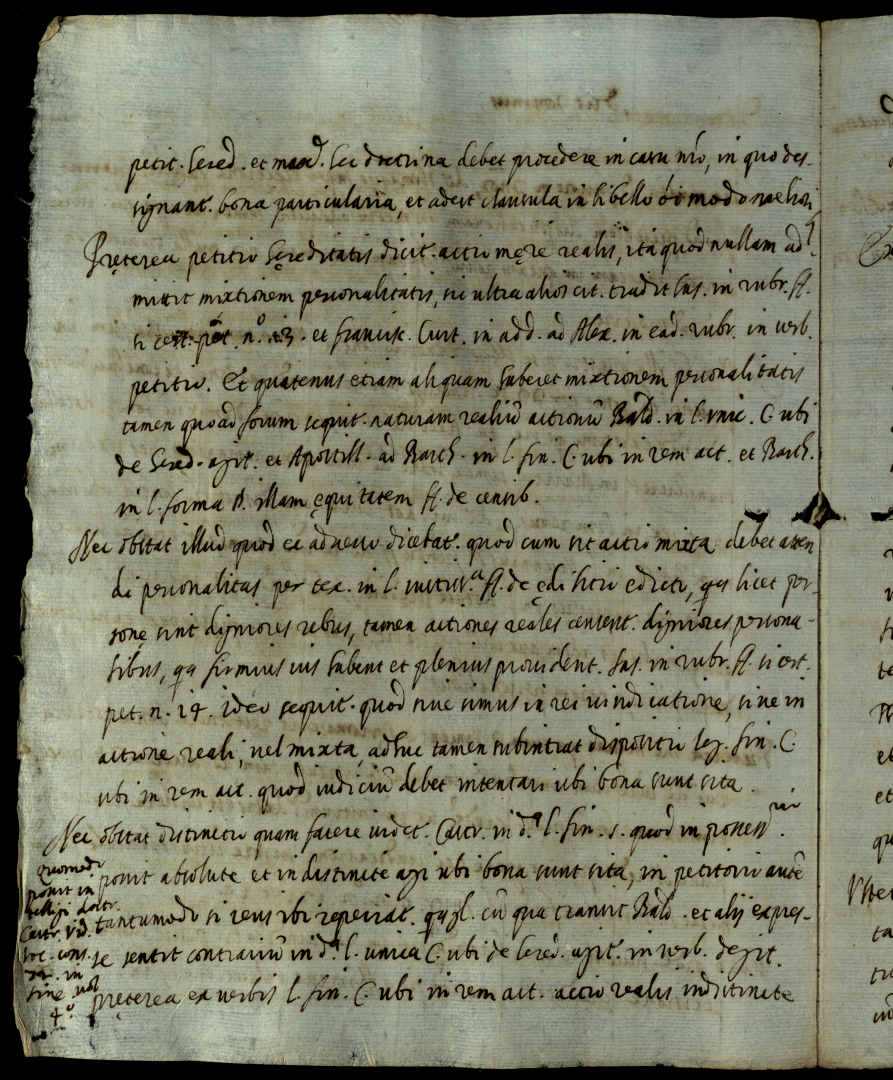 petit. hered. et maxe. hec doctrina debet procedere in casu nro, in quo des-
signant. bona particularia, et adest clausula in libello oi modo meliori
Pręterea petitio hęreditatis dicit. actio męre realis, ita quod nullam ad-
mittit mixtionem personalitatis, ut ultra alios cit. tradit Ias. in rubr. ff.
si cert. pet. n.o 13. et francisc. Curt. in add. ad Alex. in ead. rubr. in verb.
petitio. Et quatenus etiam aliquam haberet mixtionem personalitatis
tamen quo ad forum sequit. naturam realiū actionū Bald. in l. unic. C. ubi
de hered. agit. et Apostill. ad Barth. in l. fin. C. ubi in rem act. et Barth.
in l. forma §. illam ęquitatem ff. de censib.
Nec obstat illud quod ex adverso dicebat. quod cum sit actio mixta debet atten
di personalitas per tex. in l. ff. de ędilitio edicto, qa licet per-
sonę sint digniores rebus, tamen actiones reales censent. digniores persona-
libus, qa firmius ius habent et plenius provident. Ias. in rubr. ff. si cert.
pet. n. 14. ideo sequit. quod sive simus in rei vindicatione, sive in
actione reali, vel mixta, adhuc tamen subintrat dispositio leg. fin. C.
ubi in rem act. quod iudiciū debet intentari ubi bona sunt sita.
Nec obstat distinctio quam facere videt. Castr. in d.a l. fin. s. quod in possesso.
possit absolute et indistincte agi ubi bona sunt sita, in petitorio autē
tantumodo si reus ibi reperiat. qa gl. cū qua transit Bald. et alij expres-
se sentit contrariū in d.a l. unica C. ubi de hered. agit. in verb. degit.
pręterea ex verbis l. fin. C. ubi in rem act. actio realis indistincte
quomodo
possit in
telligi doctr.
Castr. vid.
soc. cons.
in
fine vol
4.o